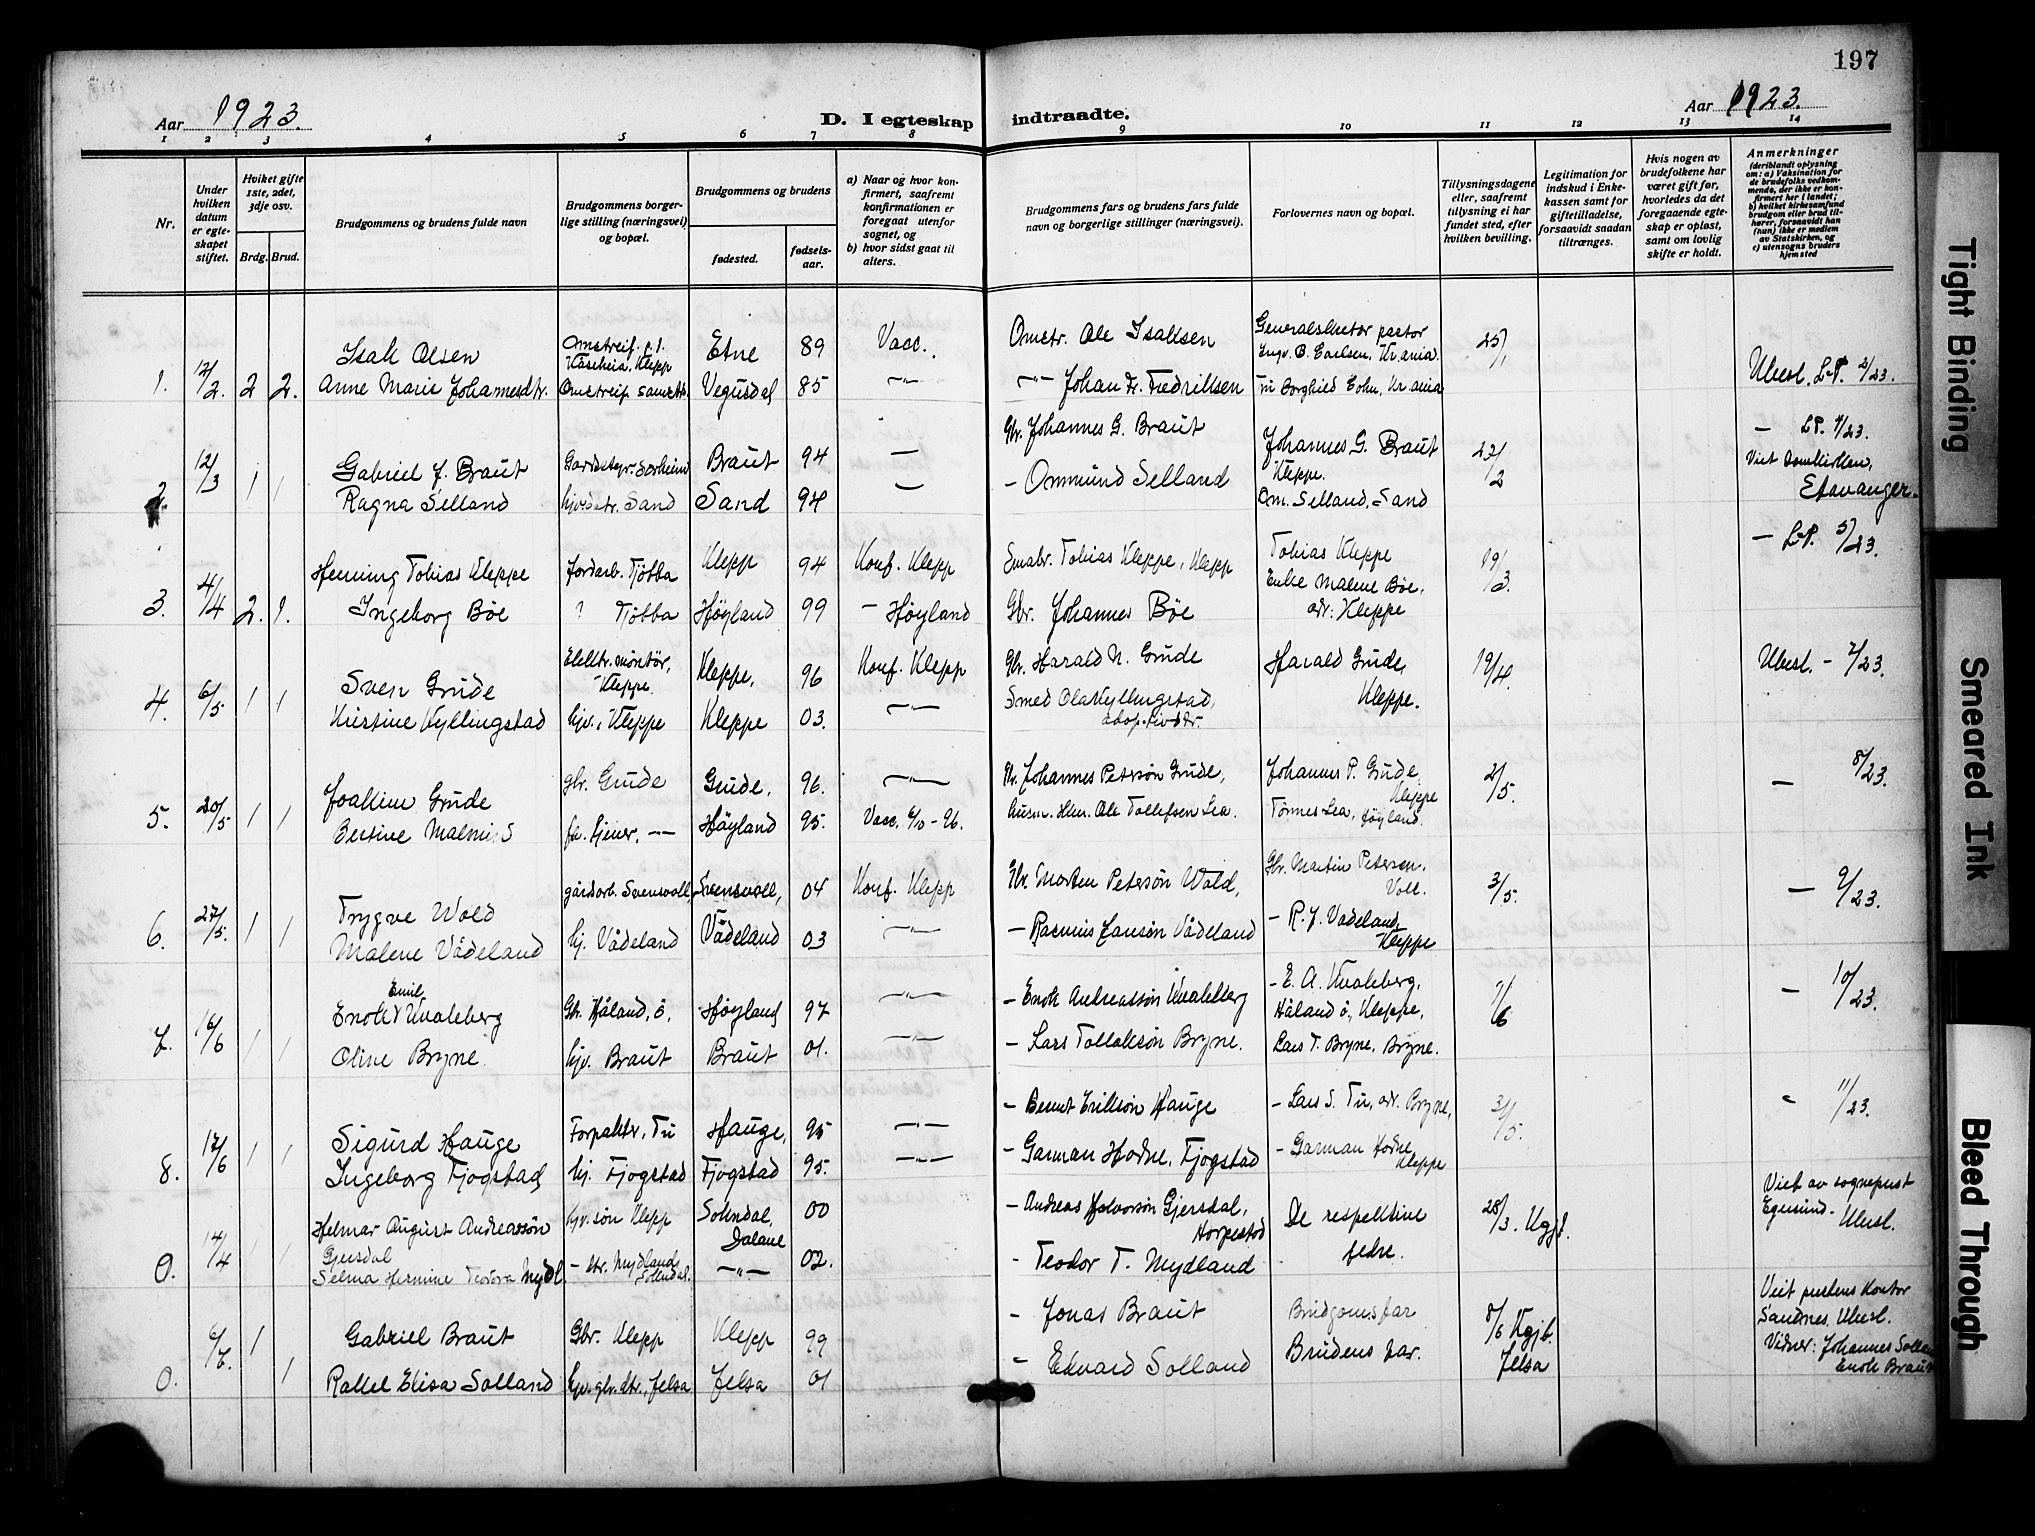 197
Aar 1923.
D. I egteskap indtraadte.
Aar 1923.
1 2 3 4 5 6 7 8 9 10 11 12 13 14
Nr.
Under hvilken datum er egteskapet stiftet.
Hviket gifte 1ste, 2det, 3dje osv.
Brdg. Brud.
Brudgommens og brudens fulde navn
Brudgommens borgerlige stilling (næringsvei) og bopæl.
Brudgommens og brudens
fødested.
fødselsaar.
a) Naar og hvor konfirmert, saafremt konfirmationen er foregaat utenfor sognet, og
b) hvor sidst gaat til alters.
Brudgommens fars og brudens fars fulde navn og borgerlige stillinger (næringsvei).
Forlovernes navn og bopæl.
Tillysningsdagene eller, saafremt tillysning ei har fundet sted, efter hvilken bevilling.
Legitimation for indskud i Enkekassen samt for giftetilladelse, forsaavidt saadan tiltrænges.
Hvis nogen av brudefolkene har været gift før, hvorledes da det foregaaende egteskap er opløst, samt om lovlig skifte er holdt.
Anmerkninger
(deriblandt oplysning om: a) Vaksination for de brudefolks vedkommende, der ikke er konfirmert her i landet; b) hvilket kirkesamfund brudgom eller brud tilhører, forsaavidt han (hun) ikke er medlem av Statskirken, og c) utensogns bruders hjemsted
1. 12/2. 2 2. Isak Olsen Etne 89 Vacc. Omstr. Ole Isaksen Generalsekretær pastor 25/1
Anne Marie Johannesdtr. Vegusdal 85 -"- -"- Johan Fr. Fredriksen Kr.ania Ubesl. L.P. 2/23.
2. 12/3 1 1 Gabriel J. Braut Braut 94 — Gbr. Johannes G. Braut Johannes G. Braut Kleppe. — L.P. 4/23.
Ragna Selland Sand Sand 94 — - Ommund Selland Om. Selland, Sand Viet Domkirken, Stavanger.
3. 4/4 2. 1. Henning Tobias Kleppe Jordarb. Tjøtta Klepp 94 Konf. Klepp Smabr. Tobias Kleppe, Klepp Tobias Kleppe 19/3. — L.P. 5/23.
Ingeborg Bøe ? Tjøtta Høyland 99 - Høyland Gbr. Johannes Bøe Enke Malene Bøe, adr: Kleppe
4. 6/5 1 1 Sven Grude Elektr. montør, Kleppe. Kleppe, 96 Konf. Klepp Gbr. Harald N. Grude Harald Grude, Kleppe. 19/4. Ubesl. - 7/23.
Kirstine Kyllingstad hjv., Kleppe Kleppe 03. -"- Smed Ola Kyllingstad,
5. 20/5 1 1 Joakim Grude gbr. Grude Grude, 96. -"- Gbr. Johannes Petersøn Grude, Johannes P. Grude, Kleppe 2/5. — 8/23.
Bertine Malmin Høyland 95. Vacc. 6/10-96. Ole Tollefsen Lea. Tønnes Lea, Høyland.
6. 27/5. 1 1 Trygve Wold gårdarb. Svensvoll, Svensvoll, 04 Konf. Klepp Gbr. Morten Petersøn Wold, Gbr. Martin Petersen, Voll. 3/5. — 9/23.
Malene Vådeland hj. Vådeland Vådeland 03 -"- - Rasmus Jansøn Vådeland - R. J. Vadeland, Kleppe
7. 16/6 1 1 Enok Emil Kvaleberg Gbr. Håland, ö. Høyland 97 -"- - Enok Andreassøn Kvaleberg - E. A. Kvaleberg, Håland ö., Kleppe, — 10/23.
Oline Bryne hjv. Braut Braut 01. -"- - Lars Tollaksøn Bryne. Lars T. Bryne, Bryne.
8. 17/6 1 1 Sigurd Hauge Forpakter, Tu Hauge, 95 -"- - Bernt Eriksøn Hauge - Lars S. Tu, adr. Bryne, 31/5. 11/23.
Ingeborg Fjogstad hj. Fjogstad Fjogstad 95. -"- - Garman Hodne, Fjogstad - Garman Hodne, Kleppe
0. 14/4 1 1 Helmar August Andreassøn Gjersdal søn Klepp Sokndal, Dalane 00 - Andreas Halvorsøn Gjersdal, Horpestad De respektive fedre. 28/3. Viet av sogneprest Egersund. Ubesl.
Selma Hermine Teodora Mydl. - dtr. Mydland Sokndal. -"- 02. - Teodor T. Mydland
0. 6/7. 1 1 Gabriel Braut Gbr. Klepp Klepp 99 - Jonas Braut Brudgoms far 8/6 Kgjb. Jelsa Viet prestens kontor Sandnes. Ubesl.
Rakel Elisa Solland Jelsa Jelsa 01 - Edvard Solland Brudens far. Vidner: Johannes Solla Enok Braut
Tight Binding
Smeared Ink
Bleed Through